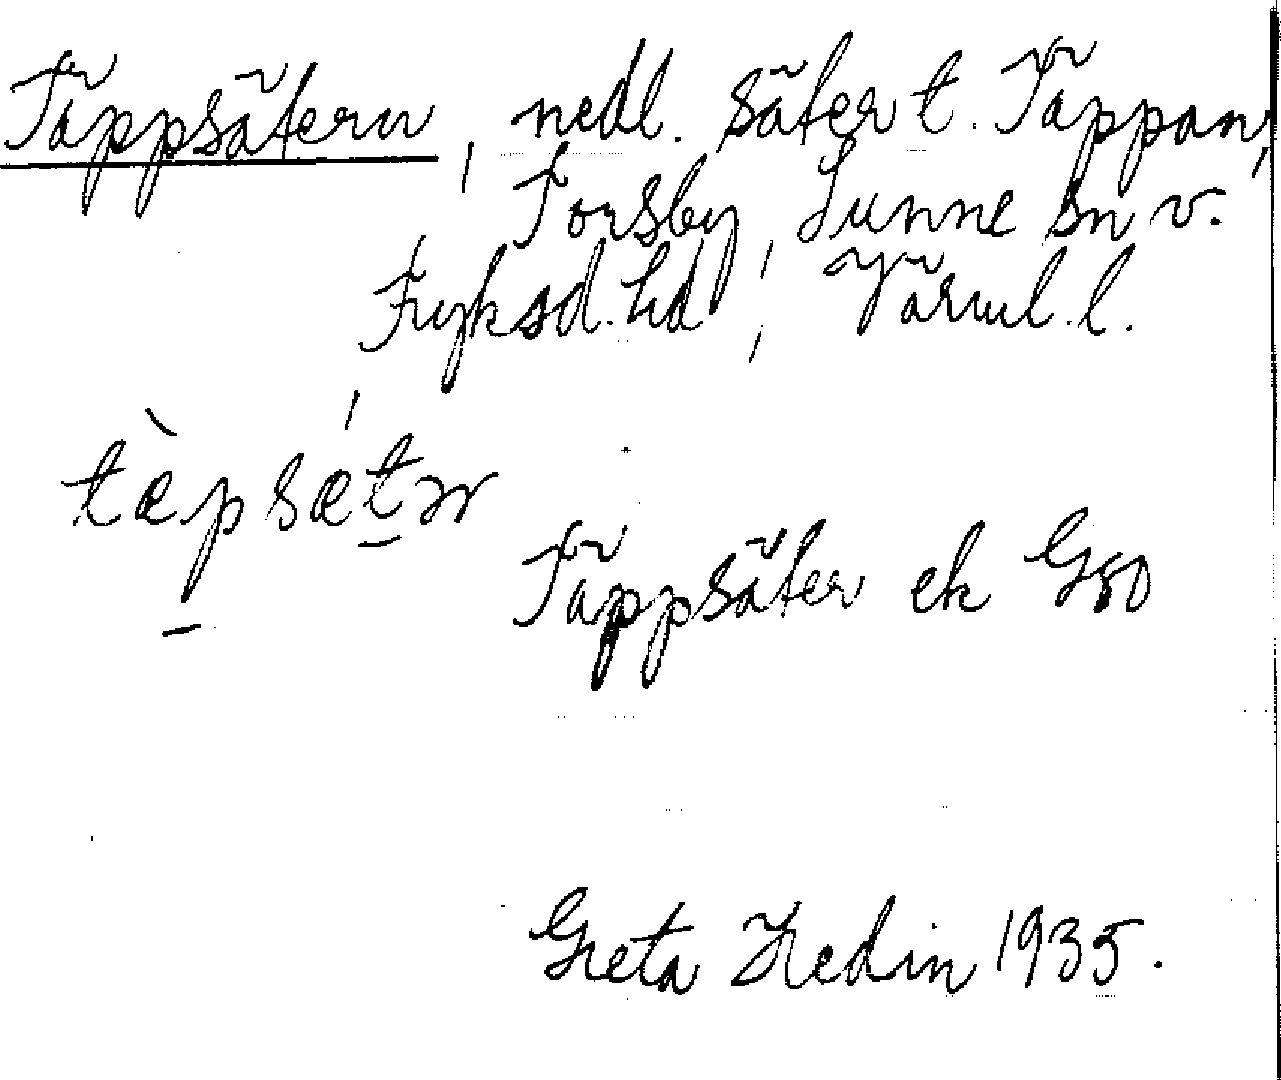 Täppsätern, nedl. säter t. Täppan,
Torsby, Sunne sn v.
Fryksd. hd, Värml. l.
tæ̀psætər
Täppsäter ek G80
Greta Hedin 1935.